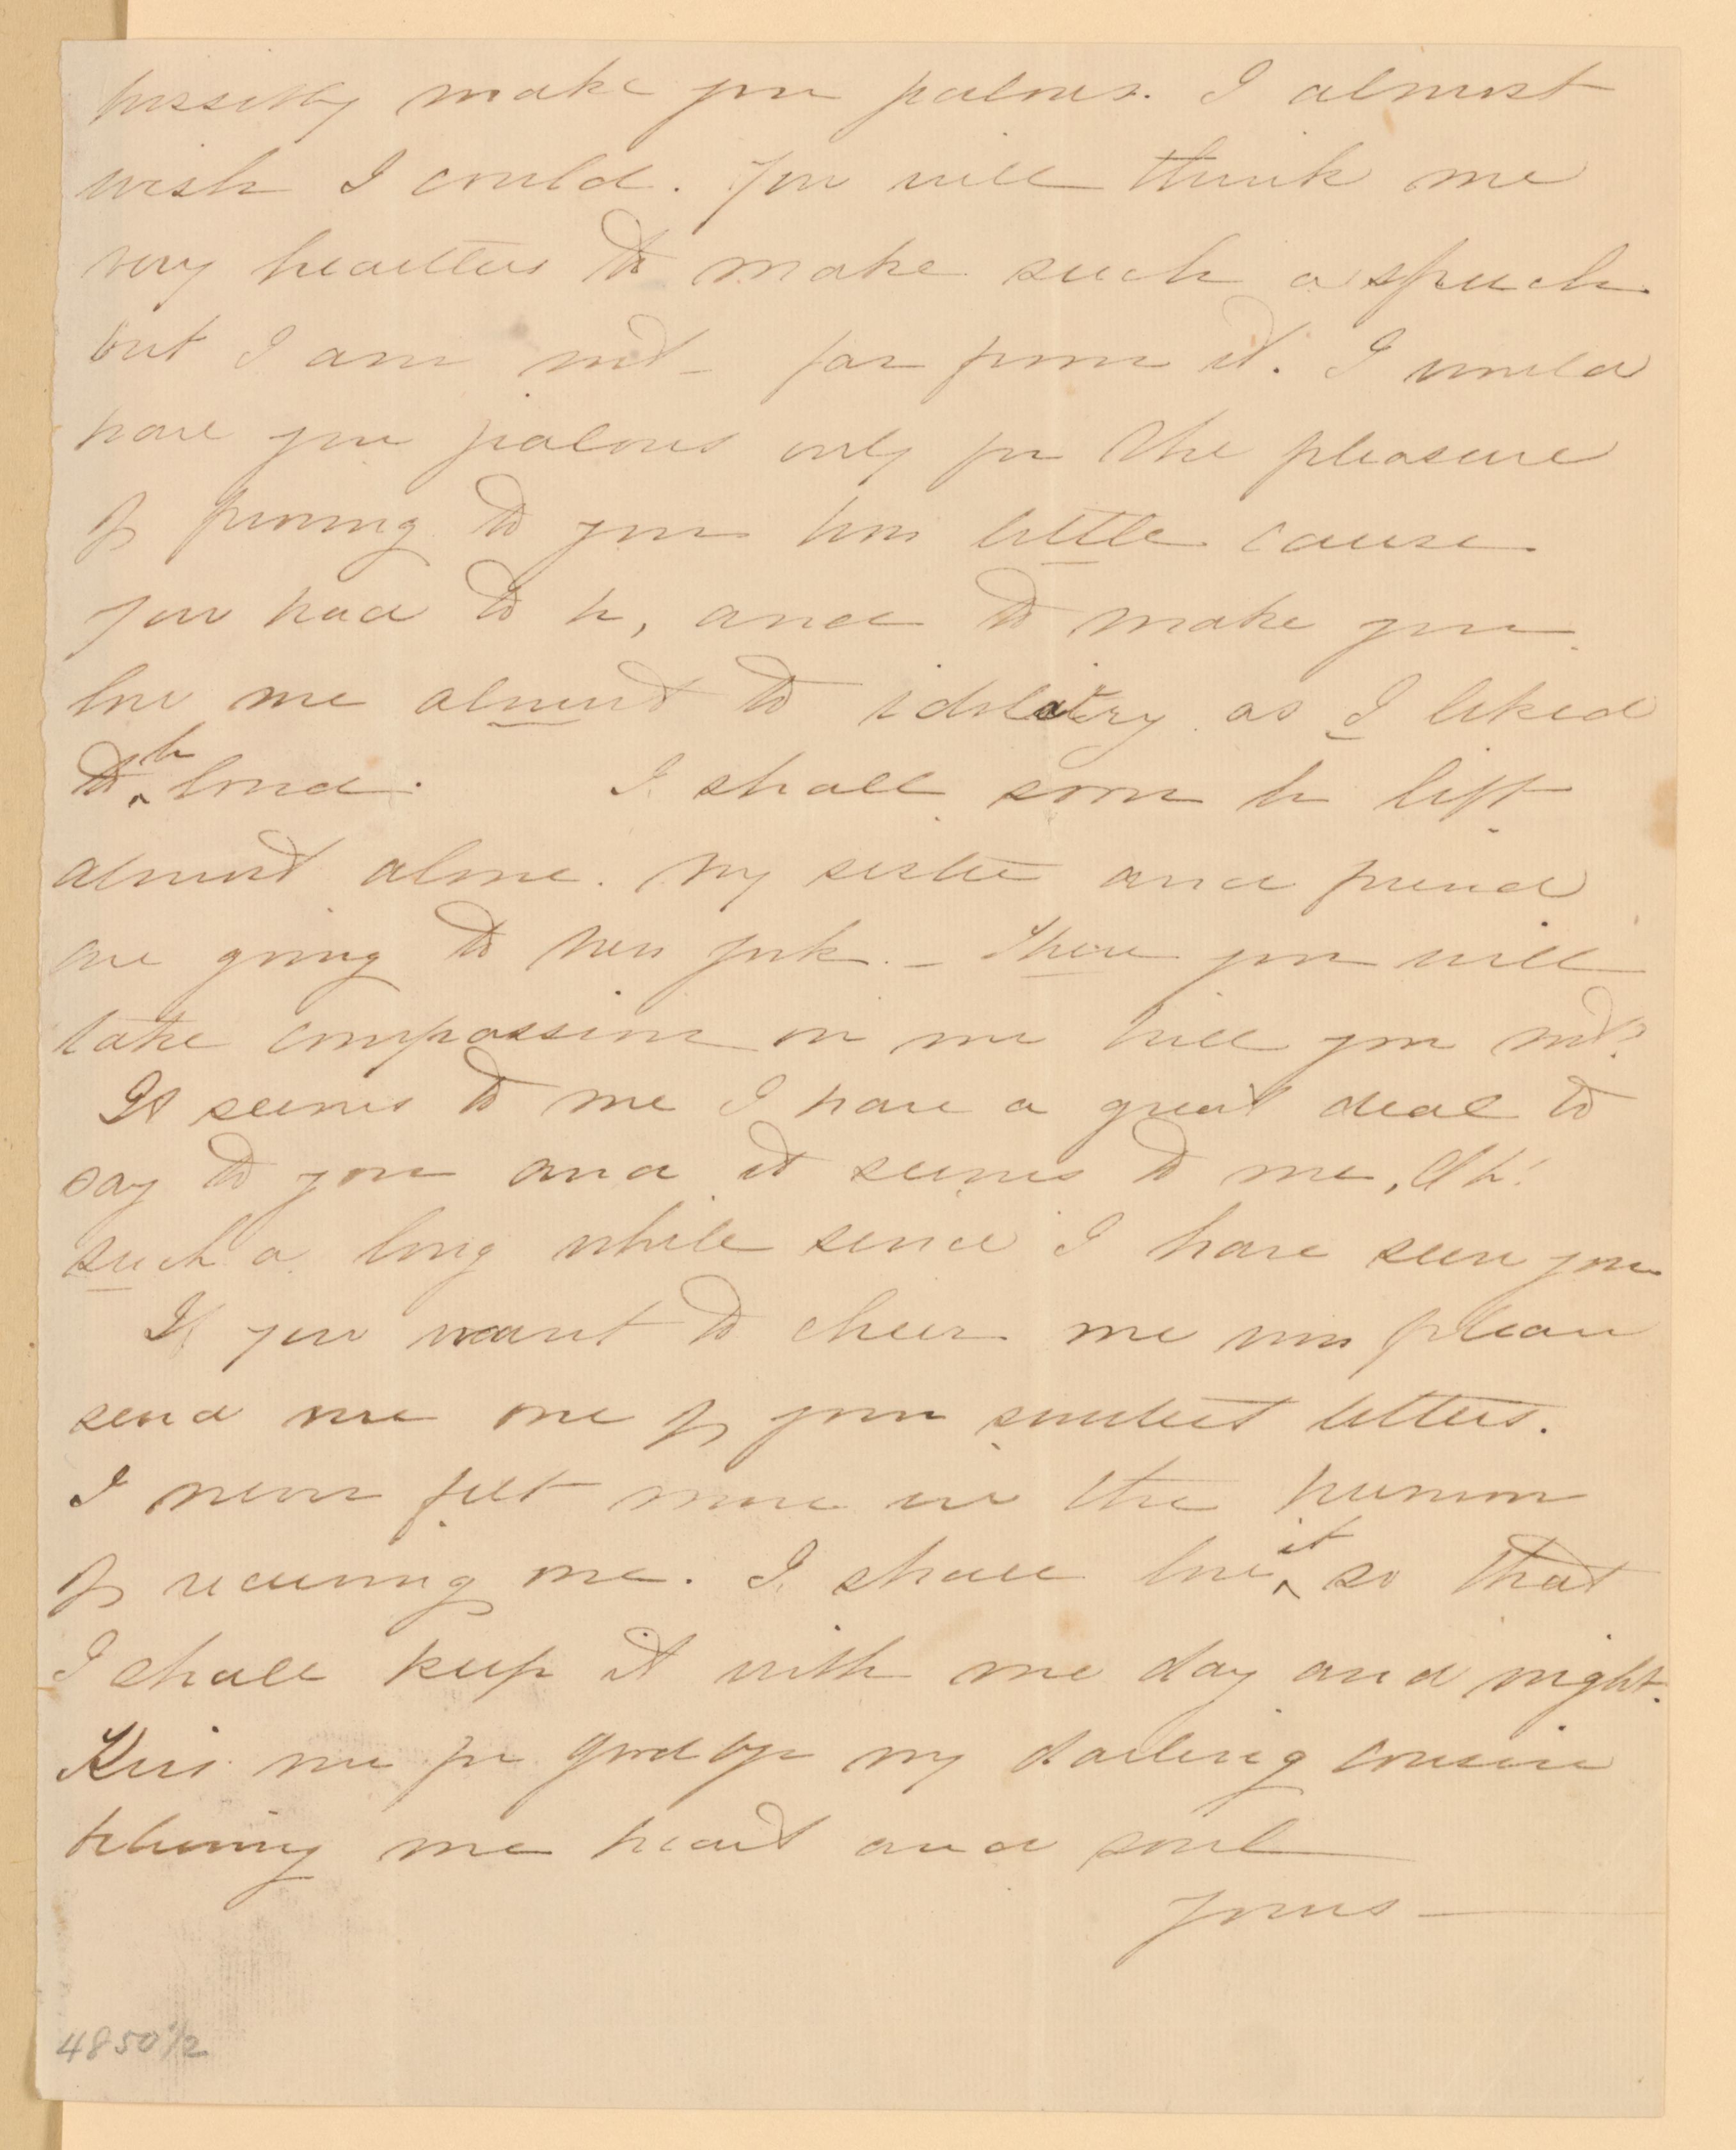 possibly make you jealous. I almost
wish I could. You will think me
very heartless to make such a speech
but I am not - far from it. I would
have you jealous only for the pleasure
of proving to you how little cause
you had to be, and to make you
love me almost to idolatry as I liked
to be loved. I shall soon be left
almost alone. My sister and friend
are going to New York. - Then you will
take compassion on me will you not?
It seems to me I have a great deal to
say to you and it seems to me, Oh!
such a long while since I have seen you
If you want to cheer me now please
send me one of your sweetest letters.
I never felt more in the humor
of receiving one. I shall love it so that
I shall keep it with me day and night.
Kiss me for good bye my darling cousin
believing me heart and soul
yours -
4850 1/2